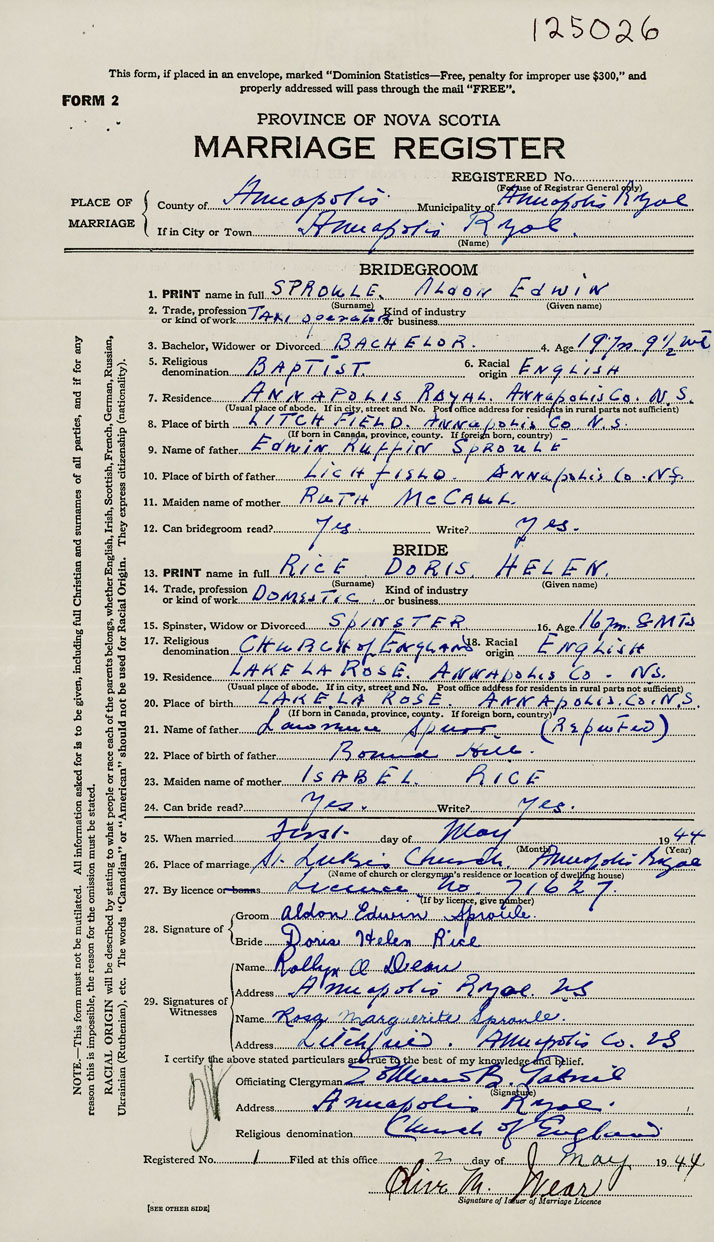 125026
This form, if placed in an envelope, marked "Dominion Statistics—Free, penalty for improper use $300," and
properly addressed will pass through the mail "FREE".
FORM 2
PROVINCE OF NOVA SCOTIA
MARRIAGE REGISTER
REGISTERED No.
(For use of Registrar General only)
PLACE OF MARRIAGE
County of Annapolis Municipality of Annapolis Royal
If in City or Town Annapolis Royal
(Name)
BRIDEGROOM
1. PRINT name in full SPROULE, ALDON EDWIN
(Surname) (Given name)
2. Trade, profession or kind of work TAXI operator Kind of industry or business
3. Bachelor, Widower or Divorced BACHELOR. 4. Age 19 9½
5. Religious denomination BAPTIST 6. Racial origin ENGLISH
7. Residence ANNAPOLIS ROYAL. ANNAPOLIS Co. N.S.
(Usual place of abode. If in city, street and No. Post office address for residents in rural parts not sufficient)
8. Place of birth LITCHFIELD. ANNAPOLIS Co N.S.
(If born in Canada, province, county. If foreign born, country)
9. Name of father EDWIN RUFFIN SPROULE
10. Place of birth of father LICHFIELD. ANNAPOLIS Co. NS.
11. Maiden name of mother RUTH McCAUL.
12. Can bridegroom read? Yes. Write? Yes.
BRIDE
13. PRINT name in full RICE DORIS HELEN.
(Surname) (Given name)
14. Trade, profession or kind of work DOMESTIC. Kind of industry or business
15. Spinster, Widow or Divorced SPINSTER 16. Age 16 8 MTS
17. Religious denomination CHURCH of ENGLAND 18. Racial origin ENGLISH
19. Residence LAKE LA ROSE. ANNAPOLIS Co - NS.
(Usual place of abode. If in city, street and No. Post office address for residents in rural parts not sufficient)
20. Place of birth LAKE LA ROSE. ANNAPOLIS. Co. N.S.
(If born in Canada, province, county. If foreign born, country)
21. Name of father Lawrence (Reputed)
22. Place of birth of father Round Hill.
23. Maiden name of mother ISABEL RICE
24. Can bride read? Yes. Write? Yes.
25. When married First day of May 1944
(Month) (Year)
26. Place of marriage St. Luke's Church, Annapolis Royal
(Name of church or clergyman's residence or location of dwelling house)
27. By licence or banns Licence No. 71627
(If by licence, give number)
28. Signature of
Groom Aldon Edwin Sproule.
Bride Doris Helen Rice
29. Signatures of Witnesses
Name O Dean
Address Annapolis Royal. NS
Name Rosy Marguerite Sproule.
Address Annapolis Co. NS
I certify the above stated particulars are true to the best of my knowledge and belief.
Officiating Clergyman B.
(Signature)
Address Annapolis Royal.
Religious denomination Church of England
Registered No. 1 Filed at this office 2 day of May 1944
Olive M. Wear
Signature of Issuer of Marriage Licence
[SEE OTHER SIDE]
NOTE.—This form must not be mutilated. All information asked for is to be given, including full Christian and surnames of all parties, and if for any
reason this is impossible, the reason for the omission must be stated.
RACIAL ORIGIN will be described by stating to what people or race each of the parents belongs, whether English, Irish, Scottish, French, German, Russian,
Ukrainian (Ruthenian), etc. The words "Canadian" or "American" should not be used for Racial Origin. They express citizenship (nationality).